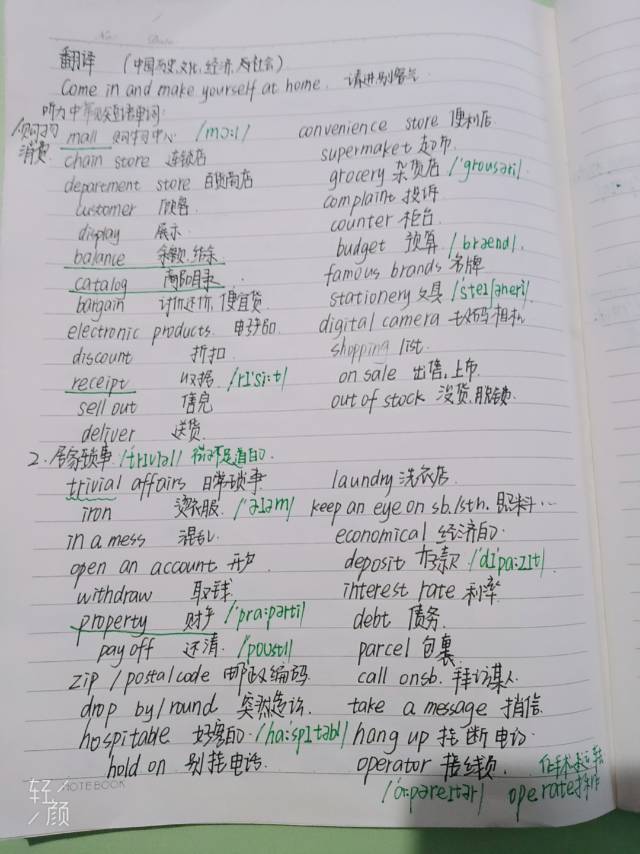 No. Date
翻译 (中国历史,文化,经济,与社会)
Come in and make yourself at home. 请进别客气
听力中常见短语单词:
1.购物消费
mall 购物中心 /mɔ:l/ convenience store 便利店
chain store 连锁店 supermaket 超市
department store 百货商店 grocery 杂货店 /ˈgrousəri/
customer 顾客 complaint 投诉
display 展示 counter 柜台
balance 余额,结余 budget 预算 /brænd/
catalog 商品目录 famous brands 名牌
bargain 讨价还价,便宜货 stationery 文具 /ˈsteɪʃəneri/
electronic products 电子产品 digital camera 数码相机
discount 折扣 shopping list.
receipt 收据 /rɪˈsi:t/ on sale 出售,上市
sell out 售完 out of stock 没货,脱销.
deliver 送货
2.居家琐事 /trɪvɪəl/ 微不足道的.
trivial affairs 日常琐事 laundry 洗衣店
iron 烫衣服 /ˈaɪəm/ keep an eye on sb./sth. 照料…
in a mess 混乱 economical 经济的
open an account 开户 deposit 存款 /dɪˈpa:zɪt/
withdraw 取钱 interest rate 利率
property 财产 /ˈpra:pərti/ debt 债务
pay off 还清 /poustl/ parcel 包裹
zip / postal code 邮政编码 call on sb. 拜访某人
drop by/round 突然造访 take a message 捎信
hospitable 好客的 /ha:spɪtəbl/ hang up 挂断电话
hold on 别挂电话 operator 接线员
/ˈa:pəreɪtər/ operate 操作
轻颜
NOTEBOOK